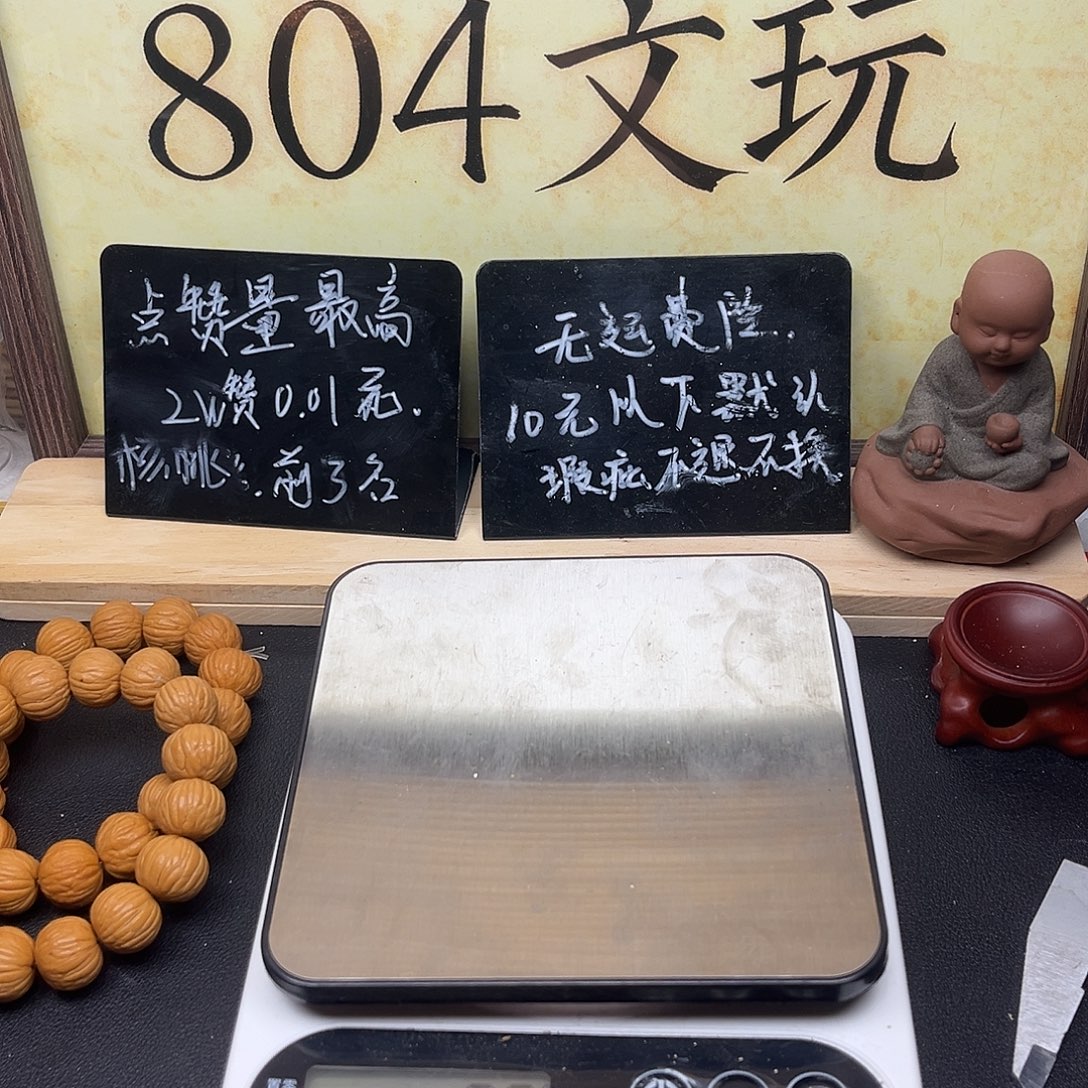 804文玩
点赞量最高
2W赞0.01元.
核桃:.前3名
无运费险.
10元以下默认
瑕疵不退不换